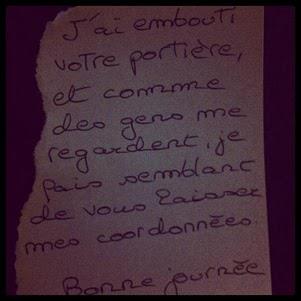 J'ai embouti
votre portière,
et comme
des gens me
regardent, je
fais semblant
de vous laisser
mes coordonnées.
Bonne journée